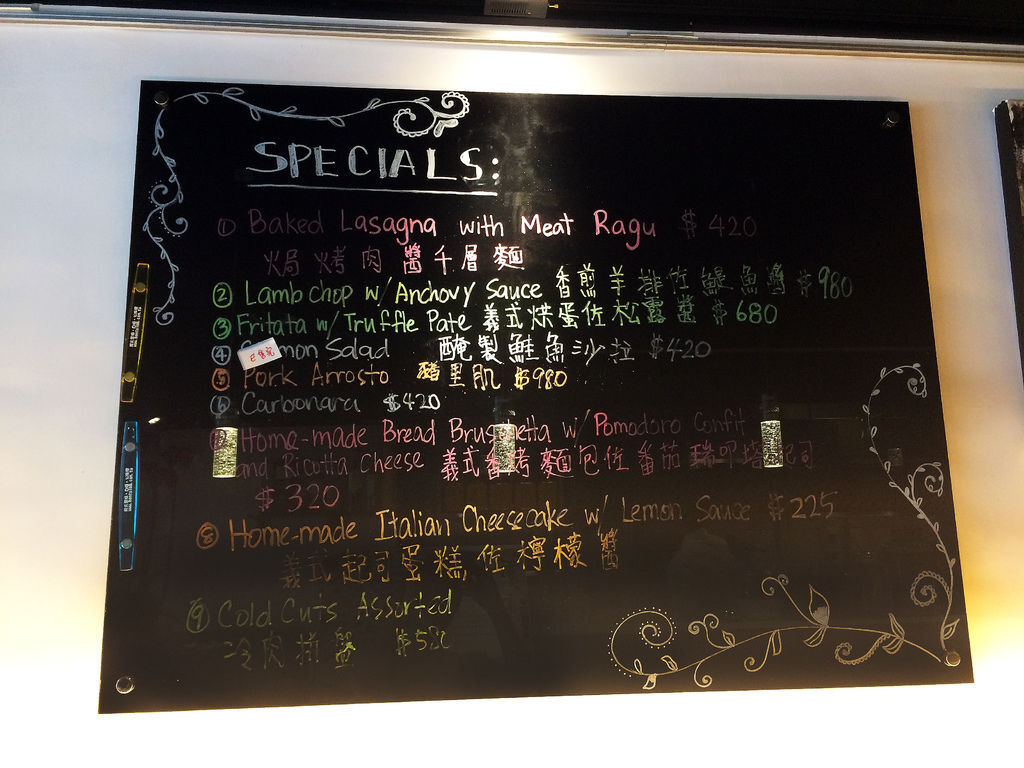 SPECIALS:
① Baked Lasagna with Meat Ragu $420
焗烤肉醬千層麵
② Lamb chop w/ Anchovy Sauce 香煎羊排佐鯷魚醬 $980
③ Fritata w/ Truffle Pate 義式烘蛋佐松露醬 $680
④ Salmon Salad 醃製鮭魚沙拉 $420
已售完
⑤ Pork Arrosto 豬里肌 $980
⑥ Carbonara $420
Home-made Bread Bruschetta w/ Pomodoro Confit
and Ricotta Cheese 義式香烤麵包佐番茄瑞可塔起司
$320
⑧ Home-made Italian Cheesecake w/ Lemon Sauce $225
義式起司蛋糕佐檸檬醬
⑨ Cold Cuts Assorted
冷肉拼盤 $580